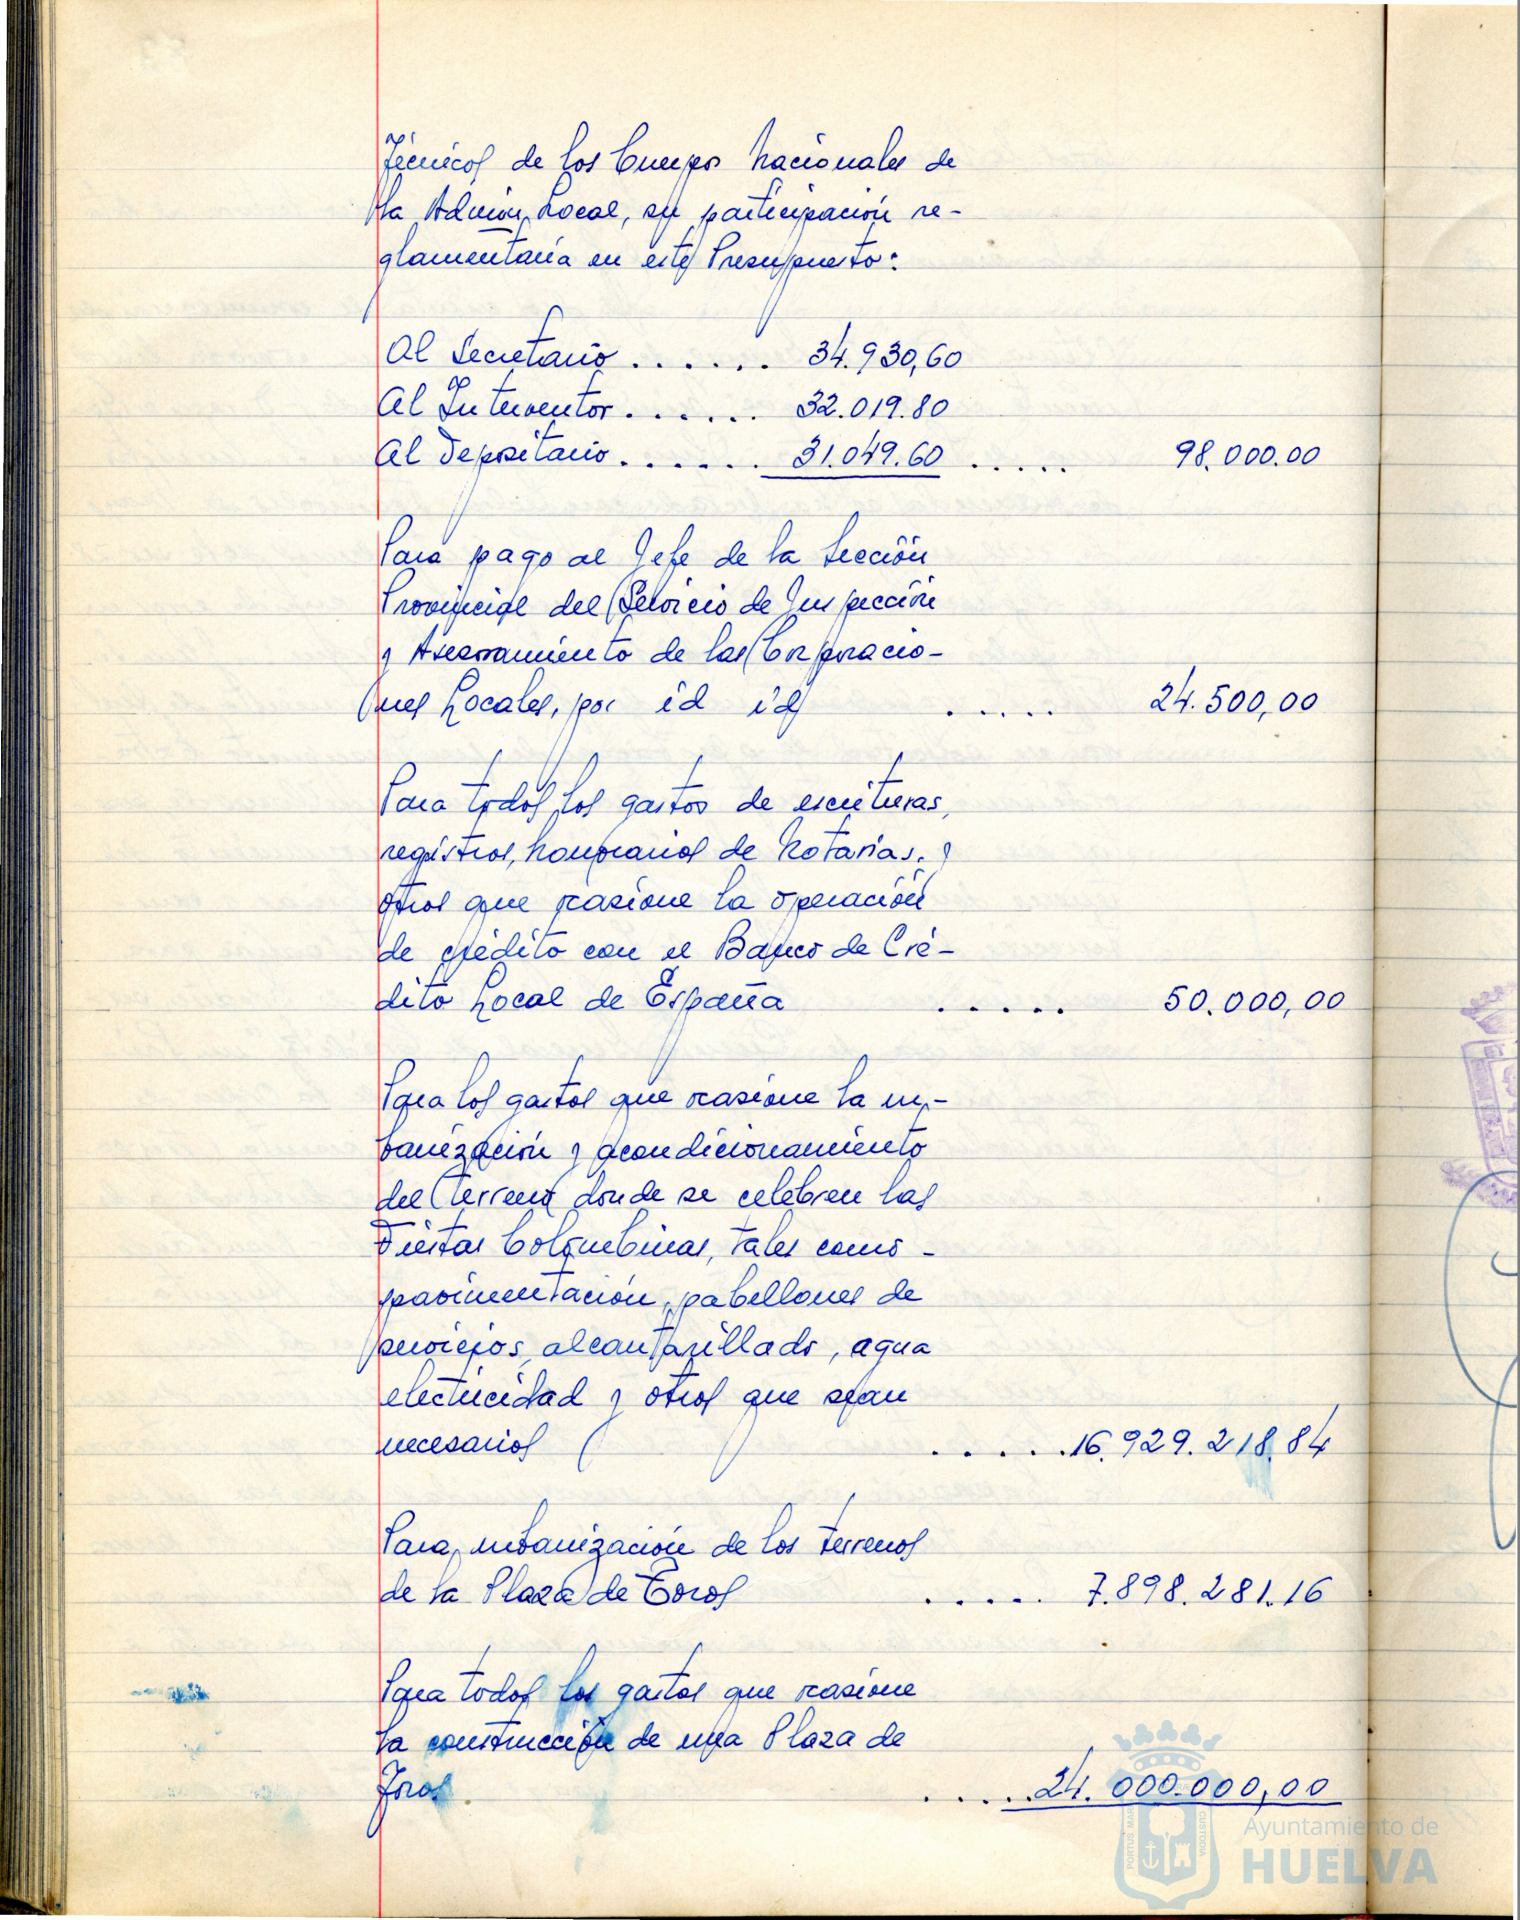 Técnicos de los Cuerpos Nacionales de
la Admón Local, su participación re-
glamentaria en este Presupuesto:
Al Secretario ...... 34.930,60
Al Interventor ...... 32.019.80
Al Depositario ...... 31.049.60 ..... 98.000.00
Para pago al Jefe de la Sección
Provincial del Servicio de Inspección
y Asesoramiento de las Corporacio-
nes Locales, por id id ..... 24.500,00
Para todos los gastos de escrituras,
registros, honorarios de Notarías, y
otros que ocasione la operación
de crédito con el Banco de Cré-
dito Local de España ..... 50.000,00
Para los gastos que ocasione la ur-
banización y acondicionamiento
del terreno donde se celebren las
Fiestas Colombinas, tales como -
pavimentación, pabellones de
servicios, alcantarillado, agua
electricidad y otros que sean
necesarios ..... 16.929.218.84
Para urbanización de los terrenos
de la Plaza de Toros ..... 7.898.281.16
Para todos los gastos que ocasione
la construcción de una Plaza de
Toros ..... 24.000.000,00
PORTUS MARIS CUSTODIA
Ayuntamiento de
HUELVA